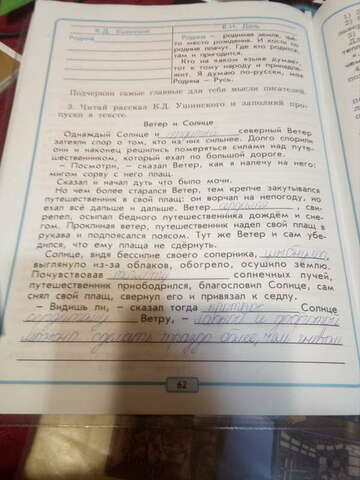 К.Д. Ушинский
В.И. Даль
Родина
Родина – родимая земля, чье-то место рождения. И кости по
родине плачут. Где кто родится,
там и пригодится.
Кто на каком языке думает,
тот к тому народу и принадле-
жит. Я думаю по-русски, моя
Родина – Русь.
Подчеркни самые главные для тебя мысли писателей.
3. Читай рассказ К.Д. Ушинского и заполняй про-
пуски в тексте.
Ветер и Солнце
Однажды Солнце и сердитый северный Ветер
затеяли спор о том, кто из них сильнее. Долго спорили
они и наконец решились померяться силами над путе-
шественником, который ехал по большой дороге.
– Посмотри, – сказал Ветер, как я налечу на него:
мигом сорву с него плащ.
Сказал и начал дуть что было мочи.
Но чем более старался Ветер, тем крепче закутывался
путешественник в свой плащ: он ворчал на непогоду, но
ехал всё дальше и дальше. Ветер сердился, сви-
репел, осыпал бедного путешественника дождём и сне-
гом. Проклиная ветер, путешественник надел свой плащ в
рукава и подпоясался поясом. Тут уже Ветер и сам убе-
дился, что ему плаща не сдёрнуть.
Солнце, видя бессилие своего соперника, улыбнулось,
выглянуло из-за облаков, обогрело, осушило землю.
Почувствовав теплоту солнечных лучей,
путешественник приободрился, благословил Солнце, сам
снял свой плащ, свернул его и привязал к седлу.
– Видишь ли, – сказал тогда кроткое Солнце
сердитому Ветру, – лаской и добротой
можно сделать гораздо более, чем гневом
62